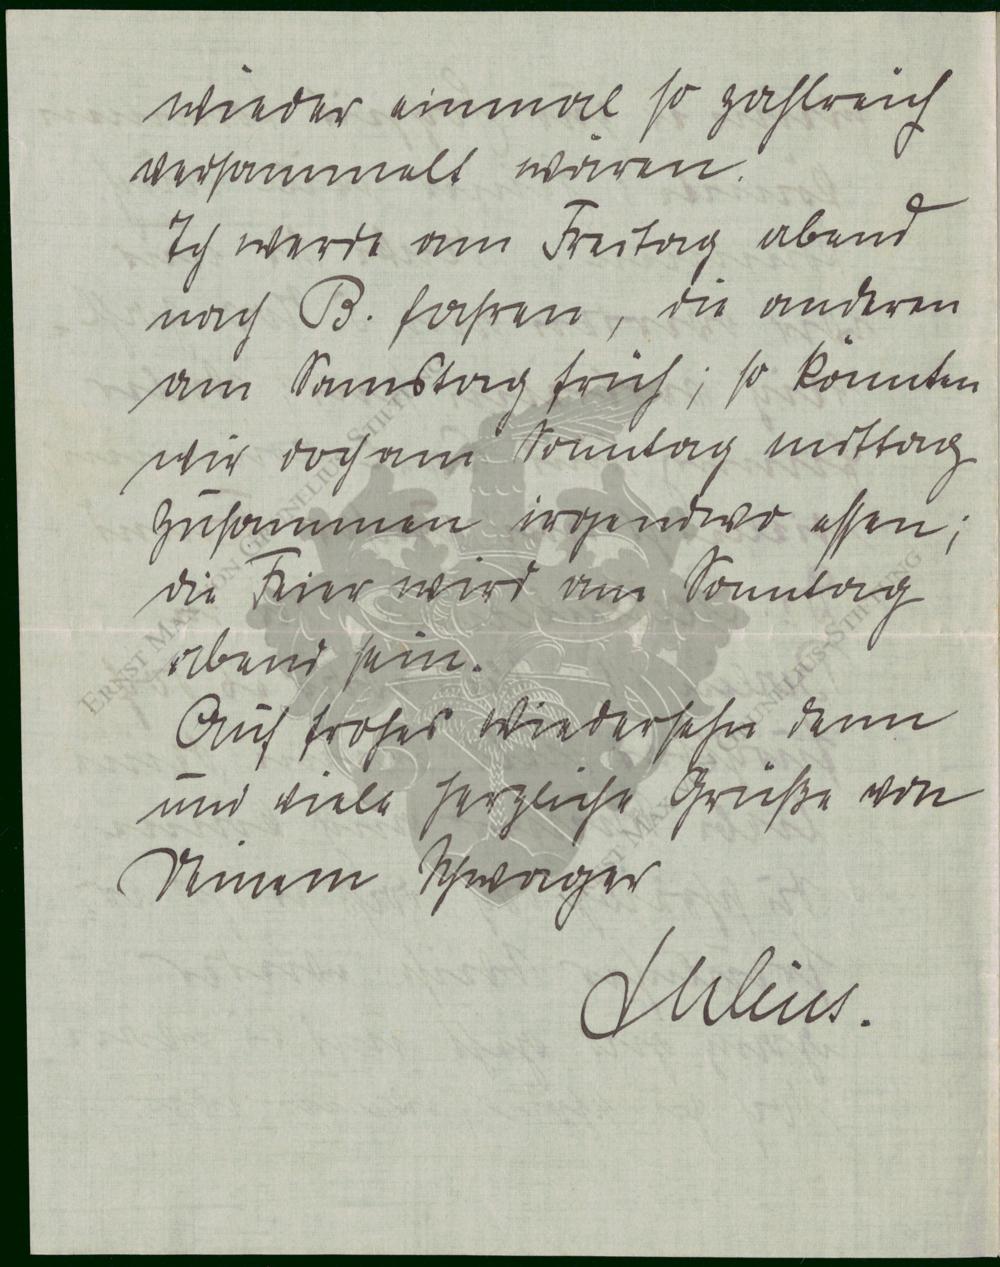 wieder einmal so zahlreich
versammelt wären.
Ich werde am Freitag abend
nach B. fahren, die anderen
am Samstag früh; so könnten
wir doch am Sonntag mittag
zusammen irgendwo essen;
die Feier wird am Sonntag
abend sein.
Auf frohes Wiedersehn denn
und viele herzliche Grüße von
Deinem Schwager
Julius.
ERNST MAX VON GRUNELIUS-STIFTUNG
ERNST MAX VON GRUNELIUS-STIFTUNG